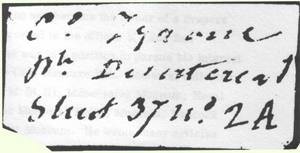 Co Tyrone
ph. Desertcreat
Sheet 37 No. 2A